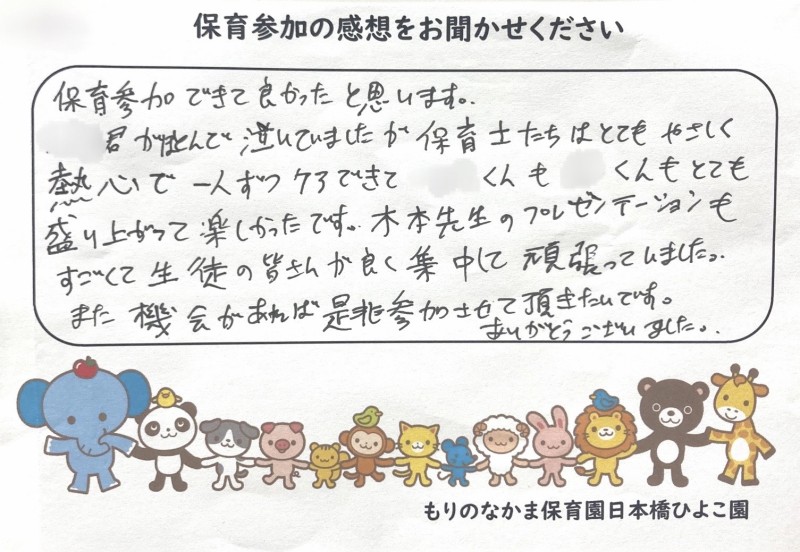 保育参加の感想をお聞かせください
保育参加できて良かったと思います。
君が飛んで泣いていましたが保育士たちはとてもやさしく
熱心で一人ずつケアできて くんも くんもとても
盛り上がって楽しかったです。木本先生のプレゼンテーションも
すごくて生徒の皆さんが良く集中して頑張っていました。
また機会があれば是非参加させて頂きたいです。
ありがとうございました。
もりのなかま保育園日本橋ひよこ園